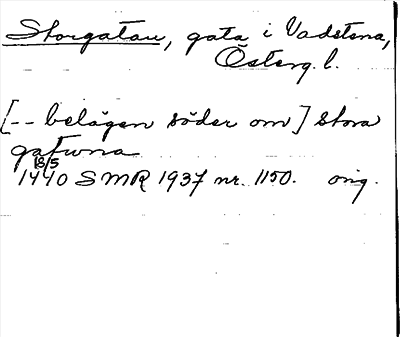 Storgatan, gata i Vadstena,
Österg. l.
[-- belägen söder om] stora
gatwna
18/5
1440 SMR 1937 nr. 1150. orig.